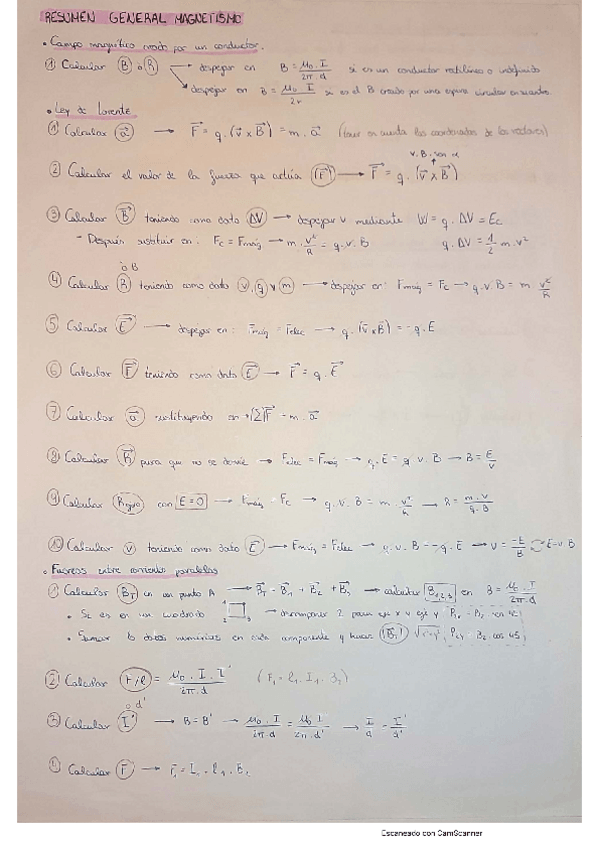 RESUMEN GENERAL MAGNETISMO
• Campo magnético creado por un conductor.
① Calcular (B) o (R) → despejar en B = μ₀ · I / 2π · d si es un conductor rectilíneo o indefinido
→ despejar en B = μ₀ · I / 2r si es el B creado por una espira circular en su centro.
• Ley de Lorentz
① Calcular (a⃗) → F⃗ = q · (v⃗ x B⃗) = m · a⃗ (tener en cuenta las coordenadas de los vectores)
v · B · sen α
② Calcular el valor de la fuerza que actúa (F⃗) → F⃗ = q · (v⃗ x B⃗)
③ Calcular (B⃗) teniendo como dato (ΔV) → despejar v mediante W = q · ΔV = Ec
- Después sustituir en: Fc = Fmag → m · v²/R = q · v · B q · ΔV = 1/2 m · v²
o B
④ Calcular (R) teniendo como dato (v), (q) y (m) → despejar en: Fmag = Fc → q · v · B = m · v²/R
⑤ Calcular (E⃗) → despejar en: Fmag = Felec → q · (v⃗ x B⃗) = -q · E
⑥ Calcular (F⃗) teniendo como dato (E⃗) → F⃗ = q · E⃗
⑦ Calcular (a⃗) sustituyendo en → |ΣF⃗ = m · a⃗
⑧ Calcular (B⃗) para que no se desvíe → Felec = Fmag → q · E = q · v · B → B = E/v
⑨ Calcular (Rgiro) con E = 0 → Fmag = Fc → q · v · B = m · v²/R → R = m · v / q · B
⑩ Calcular (v) teniendo como dato (E⃗) → Fmag = Felec → q · v · B = -q · E → v = -E/B E = v · B
• Fuerzas entre corrientes paralelas
① Calcular (B_T) en un punto A → B⃗_T = B⃗₁ + B⃗₂ + B⃗₃ → calcular B₁,₂,₃ en B = μ₀ · I / 2π · d
• Si es en un cuadrado → descomponer 2 para eje x y eje y
• Sumar los datos numéricos en cada componente y hacer B₂ · cos 45
② Calcular (F/l) = μ₀ · I · I' / 2π · d (F₁ = l₁ · I₁ · B₂)
o d'
③ Calcular (I') → B = B' → μ₀ · I / 2π · d = μ₀ I' / 2π · d' → I/d = I'/d'
Calcular (F) → F₁ = I₁ · l₁ · B₂
Escaneado con CamScanner